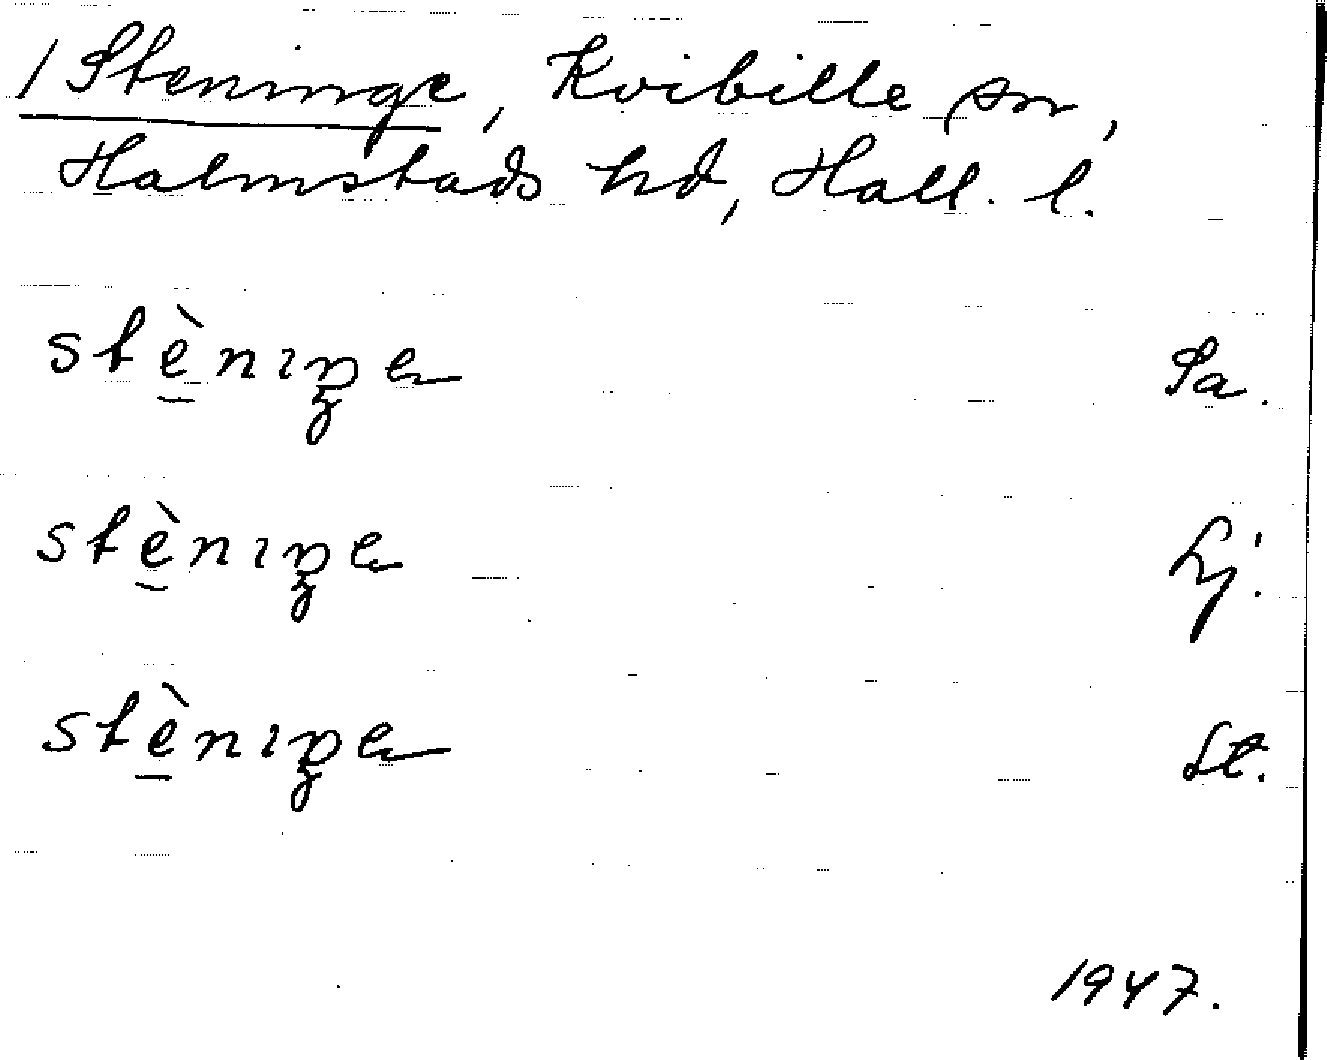 / Steninge, Kvibille sn,
Halmstads hd, Hall. l.
stè̠nıŋe Sa.
stè̠nıŋe Lj.
stè̠nıŋe St.
1947.